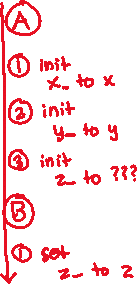 A
1 init
x_ to x
2 init
y_ to y
3 init
z_ to ???
B
1 set
z_ to z